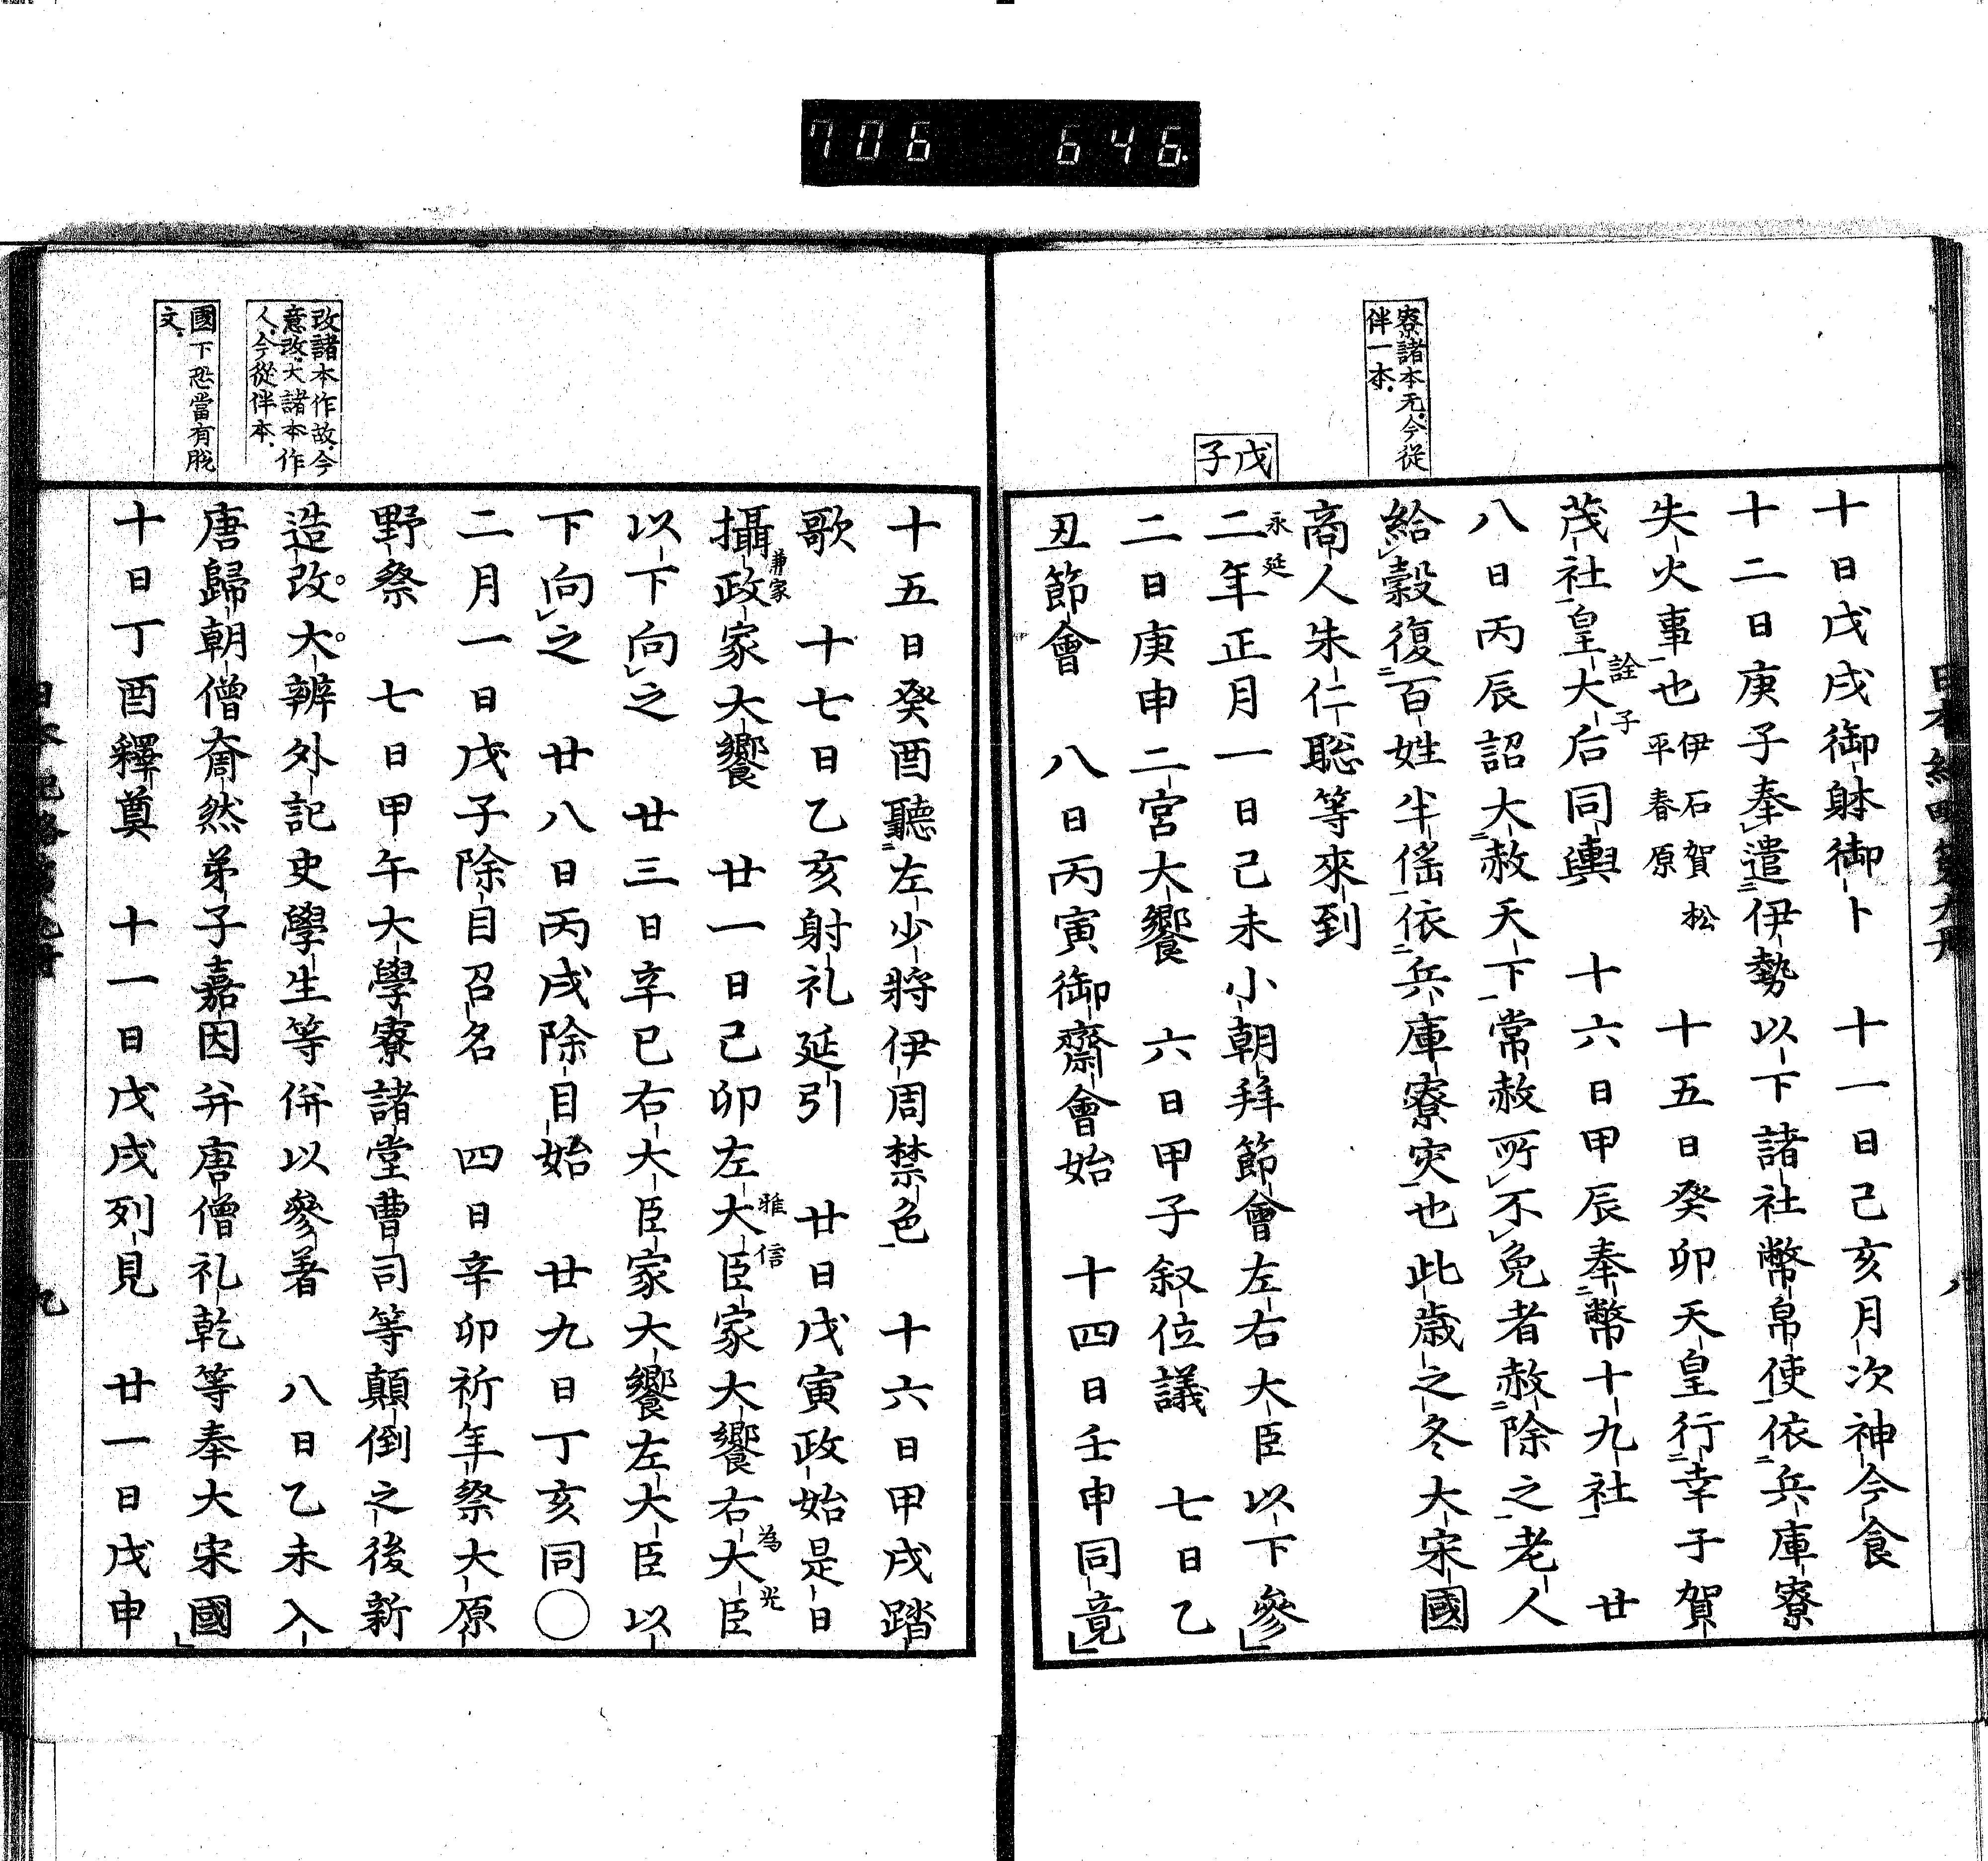 706 646.
寮諸本无.今從
伴一本.
戊子
十日戊戌御躰御卜 十一日己亥月次神今食
十二日庚子奉遣伊勢以下諸社幣帛使依兵庫寮
失火事也伊石賀松平春原 十五日癸卯天皇行幸于賀
茂社皇大后同輿 十六日甲辰奉幣十九社 廿
詮子
八日丙辰詔大赦天下常赦所不免者赦除之老人
給穀復百姓半徭依兵庫寮灾也此歳之冬大宋國
商人朱仁聡等來到
永延
二年正月一日己未小朝拜節會左右大臣以下參
二日庚申二宮大饗 六日甲子叙位議 七日乙
丑節會 八日丙寅御齋會始 十四日壬申同竟
改諸本作故.今
意改.大諸本作
人.今從伴本.
國下恐當有脱
文.
十五日癸酉聽左少將伊周禁色 十六日甲戌踏
歌 十七日乙亥射礼延引 廿日戊寅政始是日
兼家
攝政家大饗 廿一日己卯左大臣家大饗右大臣
雅信
為光
以下向之 廿三日辛巳右大臣家大饗左大臣以
下向之 廿八日丙戌除目始 廿九日丁亥同○
二月一日戊子除目召名 四日辛卯祈年祭大原
野祭 七日甲午大學寮諸堂曹司等顛倒之後新
造改大辨外記史學生等併以參著 八日乙未入
唐歸朝僧奝然弟子嘉因并唐僧礼乾等奉大宋國
十日丁酉釋奠 十一日戊戌列見 廿一日戊申
九